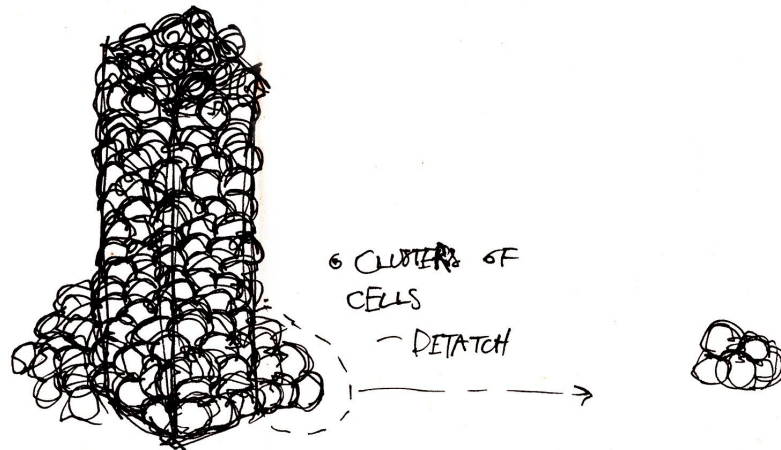 • CLUSTERS OF
CELLS
– DETATCH